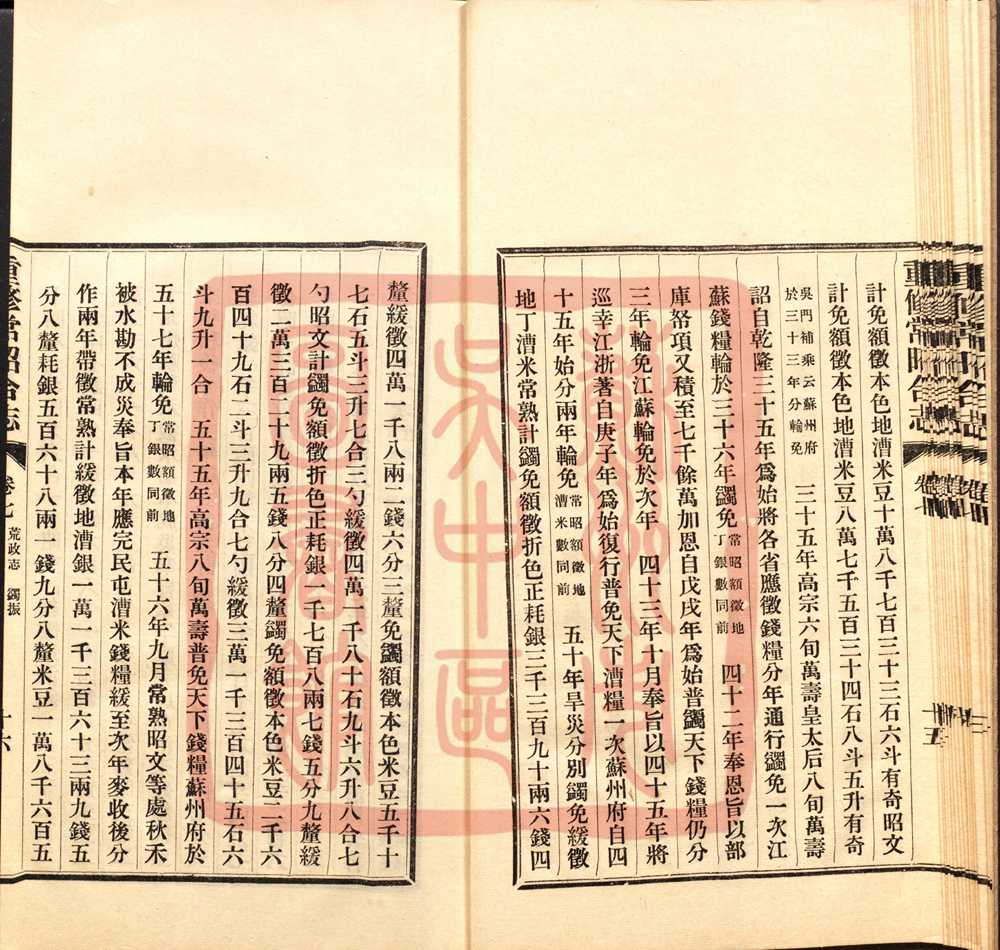 計免額徵本色地漕米豆十萬八千七百三十三石六斗有奇昭文
計免額徵本色地漕米豆八萬七千五百三十四石八斗五升有奇
吳門補乘云蘇州府於三十三年分輪免 三十五年高宗六旬萬壽皇太后八旬萬壽
詔自乾隆三十五年爲始將各省應徵錢糧分年通行蠲免一次江
蘇錢糧輪於三十六年蠲免常昭額徵地丁銀數同前 四十二年奉恩旨以部
庫帑項又積至七千餘萬加恩自戊戌年爲始普蠲天下錢糧仍分
三年輪免江蘇輪免於次年 四十三年十月奉旨以四十五年將
巡幸江浙著自庚子年爲始復行普免天下漕糧一次蘇州府自四
十五年始分兩年輪免常昭額徵地漕米數同前 五十年旱災分別蠲免緩徵
地丁漕米常熟計蠲免額徵折色正耗銀三千三百九十兩六錢四
釐緩徵四萬一千八兩二錢六分三釐免蠲額徵本色米豆五千十
七石五斗三升七合三勺緩徵四萬一千八十石九斗六升八合七
勺昭文計蠲免額徵折色正耗銀一千七百八兩七錢五分九釐緩
徵二萬三百二十九兩五錢八分四釐蠲免額徵本色米豆二千六
百四十九石二斗三升九合七勺緩徵三萬一千三百四十五石六
斗九升一合 五十五年高宗八旬萬壽普免天下錢糧蘇州府於
五十七年輪免常昭額徵地丁銀數同前 五十六年九月常熟昭文等處秋禾
被水勘不成災奉旨本年應完民屯漕米錢糧緩至次年麥收後分
作兩年帶徵常熟計緩徵地漕銀一萬一千三百六十三兩九錢五
分八釐耗銀五百六十八兩一錢九分八釐米豆一萬八千六百五
重修常昭合志 卷七 荒政志 蠲振 十六